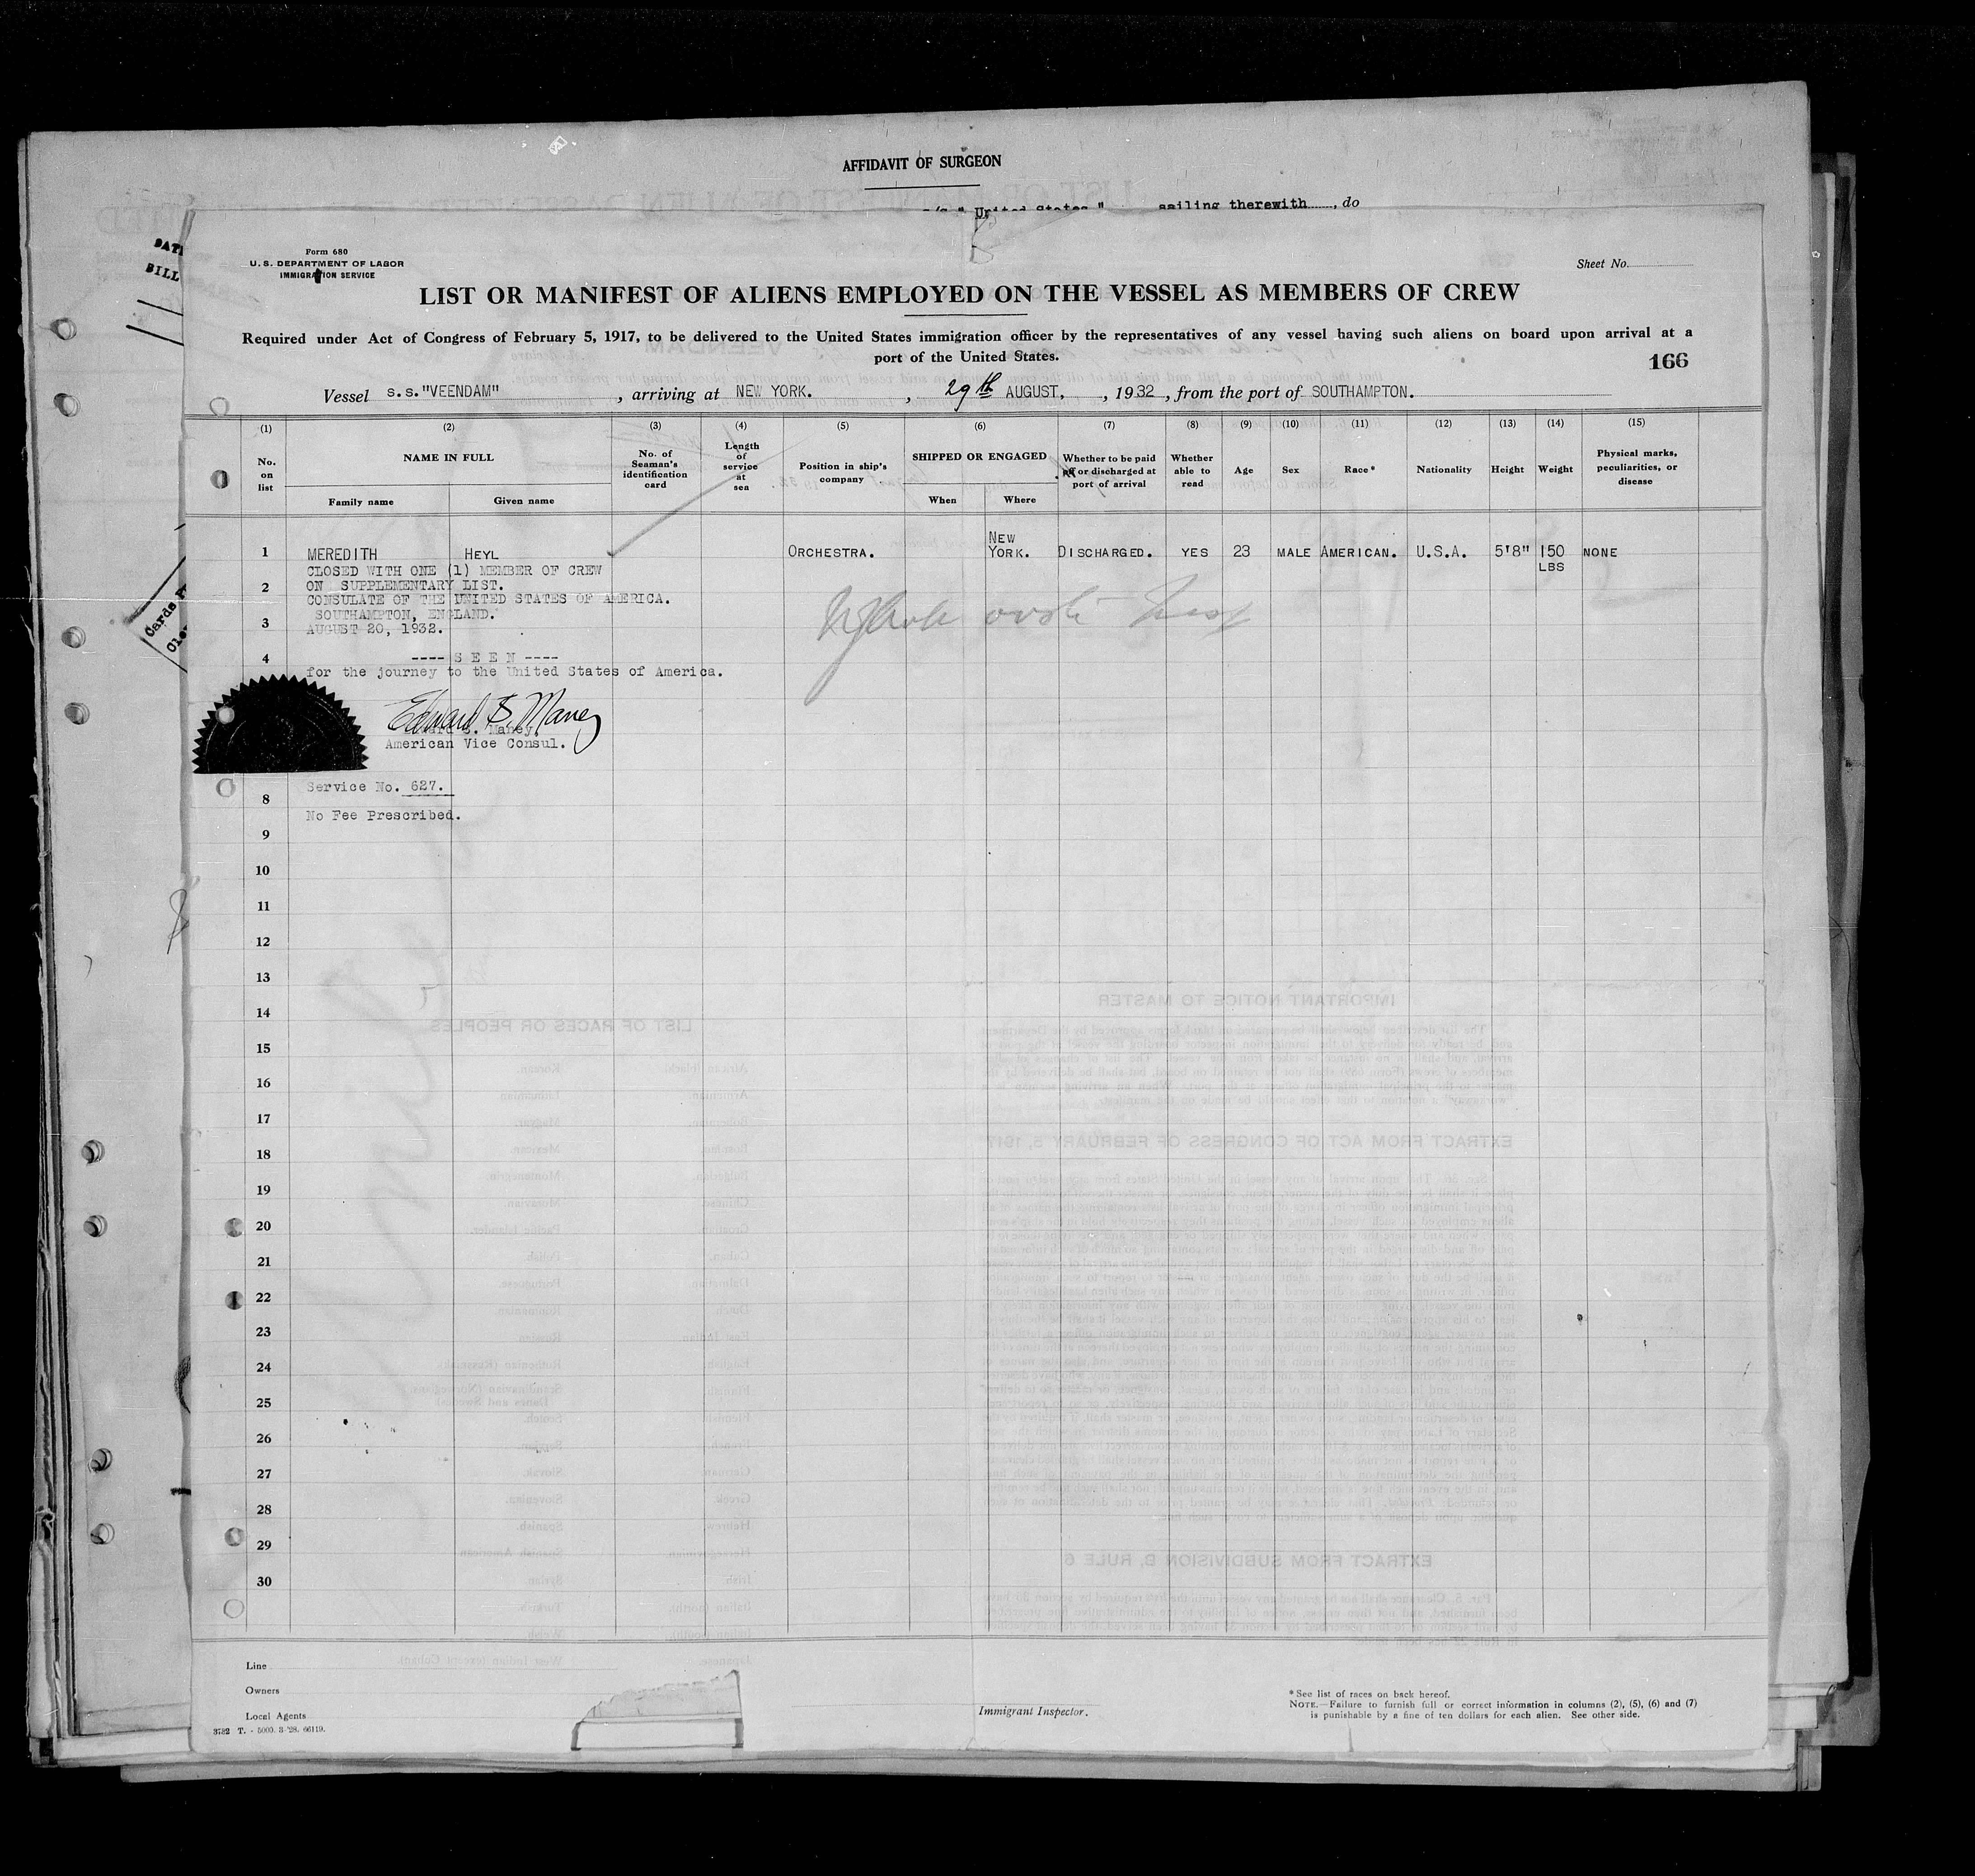 AFFIDAVIT OF SURGEON
"United States" sailing therewith, do
Form 680
U.S. DEPARTMENT OF LABOR
IMMIGRATION SERVICE
Sheet No.
LIST OR MANIFEST OF ALIENS EMPLOYED ON THE VESSEL AS MEMBERS OF CREW
Required under Act of Congress of February 5, 1917, to be delivered to the United States immigration officer by the representatives of any vessel having such aliens on board upon arrival at a
port of the United States.
166
Vessel S.S."VEENDAM" , arriving at NEW YORK. , 29th AUGUST, , 1932, from the port of SOUTHAMPTON.
(1) (2) (3) (4) (5) (6) (7) (8) (9) (10) (11) (12) (13) (14) (15)
No. on list
NAME IN FULL
Family name
Given name
No. of Seaman's identification card
Length of service at sea
Position in ship's company
SHIPPED OR ENGAGED
When
Where
Whether to be paid off or discharged at port of arrival
Whether able to read
Age
Sex
Race*
Nationality
Height
Weight
Physical marks, peculiarities, or disease
1 MEREDITH HEYL ORCHESTRA. NEW YORK. DISCHARGED. YES 23 MALE AMERICAN. U.S.A. 5'8" 150 LBS NONE
CLOSED WITH ONE (1) MEMBER OF CREW
2 ON SUPPLEMENTARY LIST.
CONSULATE OF THE UNITED STATES OF AMERICA.
SOUTHAMPTON, ENGLAND.
3 AUGUST 20, 1932.
4 ---- S E E N ----
for the journey to the United States of America.
Edward S. Maney
Edward S. Maney,
American Vice Consul.
Service No. 627.
8
No Fee Prescribed.
9
10
11
12
13
14
15
16
17
18
19
20
21
22
23
24
25
26
27
28
29
30
Line
Owners
Local Agents
3732 T. - 5000. 3-'28. 66119.
Immigrant Inspector.
* See list of races on back hereof.
NOTE.—Failure to furnish full or correct information in columns (2), (5), (6) and (7)
is punishable by a fine of ten dollars for each alien. See other side.